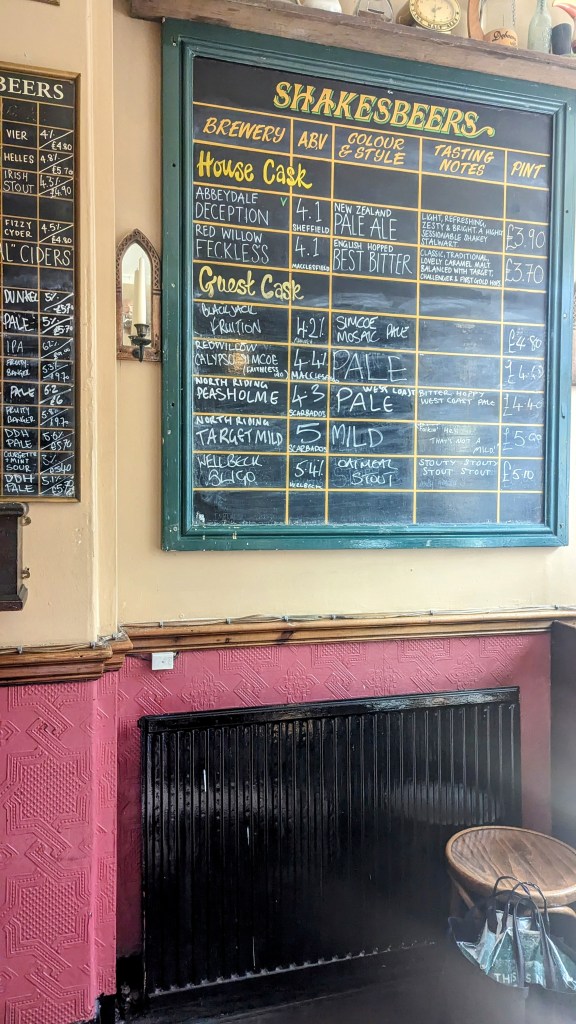 BEERS
VIER 4% £4.80
HELLES 4.8% £5.70
IRISH STOUT 4.3% £4.90
FIZZY CYDER 4.5% £4.80
L" CIDERS
DUNKEL 5%
PALE 5%
IPA
FRUITY BANGER
PALE 6.2 £6
FRUITY BANGER
DDH PALE 5.6%
COURGETTE & MINT SOUR
DDH PALE
SHAKESBEERS
BREWERY ABV COLOUR & STYLE TASTING NOTES PINT
House Cask
ABBEYDALE
DECEPTION
4.1
SHEFFIELD
NEW ZEALAND
PALE ALE
LIGHT, REFRESHING,
ZESTY & BRIGHT A
SESSIONABLE SHAKEY
STALWART.
£3.90
RED WILLOW
FECKLESS
4.1
MACCLESFIELD
ENGLISH HOPPED
BEST BITTER
CLASSIC, TRADITIONAL,
LOVELY CARAMEL MALT
BALANCED WITH TARGET,
CHALLENGER & FIRST GOLD HOPS
£3.70
Guest Cask
BLACKJACK
FRUITION
4.2%
SIMCOE
MOSAIC PALE
£4.80
REDWILLOW
CALYPSO SIMCOE
(FAITHLESS
4.4%
PALE
NORTH RIDING
PEASHOLME
4.3
SCARBADOS
WEST COAST
PALE
BITTER HOPPY
WEST COAST PALE
£4.40
NORTH RIDING
TARGET MILD
5
SCARBADOS
MILD
THAT'S NOT A
MILD'
£5.00
WELLBECK
BLIGO
5.4%
OATMEAL
STOUT
STOUTY STOUTY
STOUT STOUT
£5.10
THIS IS N